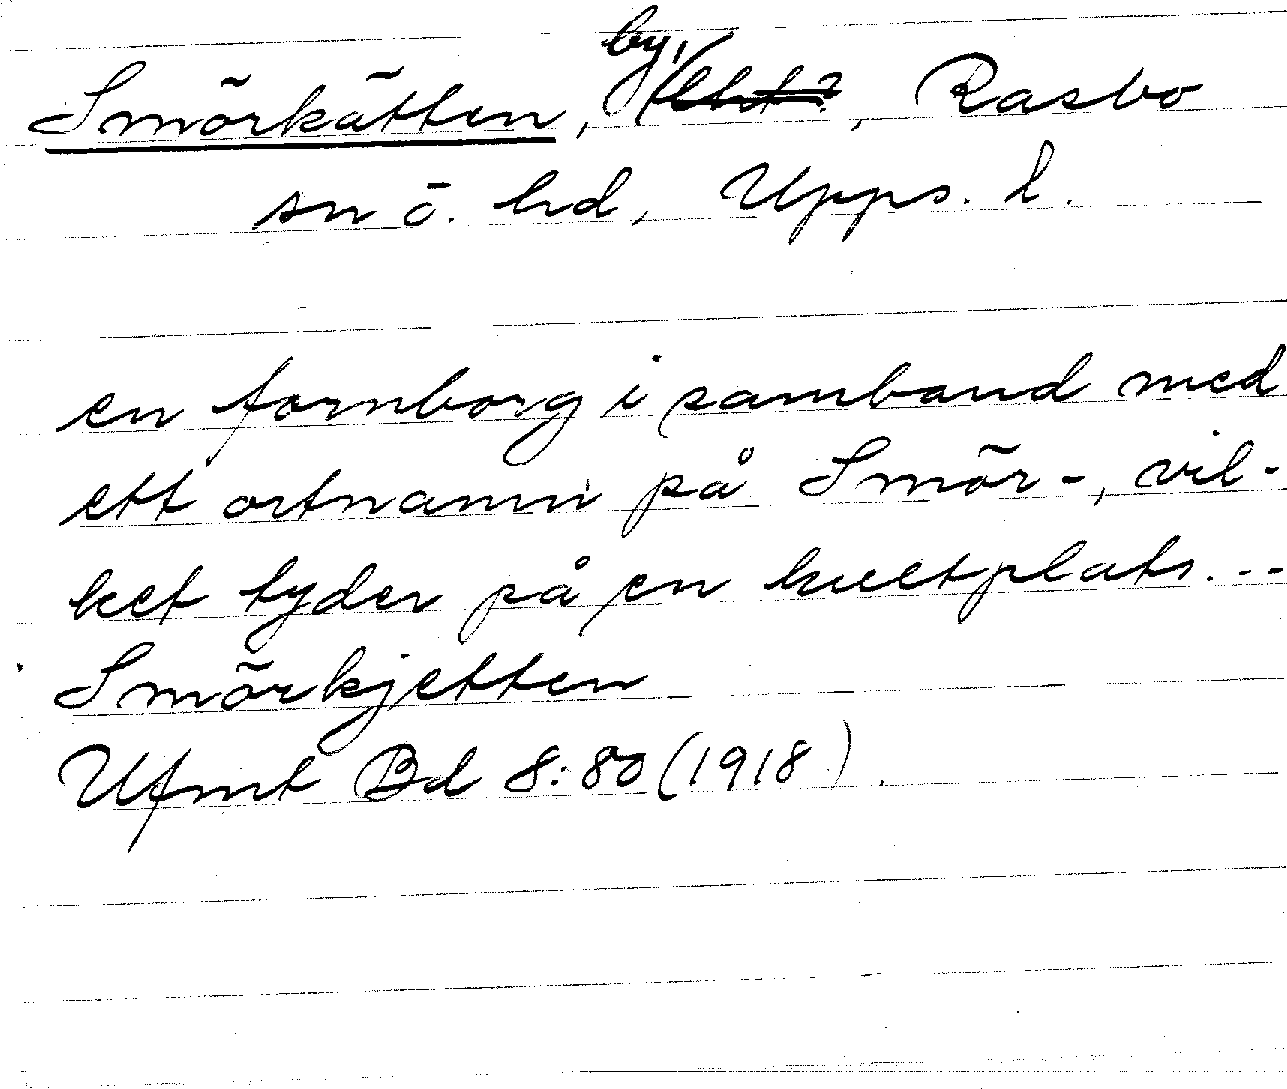 Smörkätten, by, Rasbo
sn o. hd, Upps. l.
en fornborg i samband med
ett ortnamn på Smör-, vil-
ket tyder på en kultplats...
Smörkjetten
Ufmt Bd 8:80 (1918).